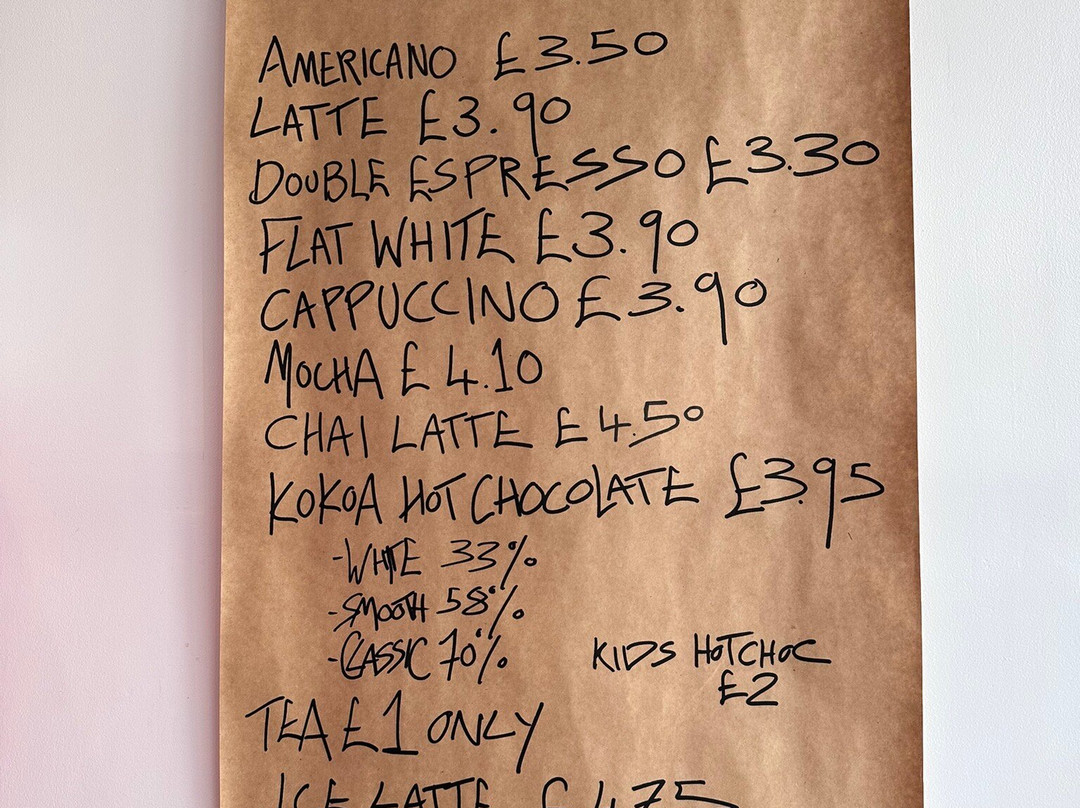 AMERICANO £3.50
LATTE £3.90
DOUBLE ESPRESSO £3.30
FLAT WHITE £3.90
CAPPUCCINO £3.90
MOCHA £4.10
CHAI LATTE £4.50
KOKOA HOT CHOCOLATE £3.95
-WHITE 33%
-SMOOTH 58%
-CLASSIC 70%
KIDS HOT CHOC
£2
TEA £1 ONLY
ICE LATTE £4.75